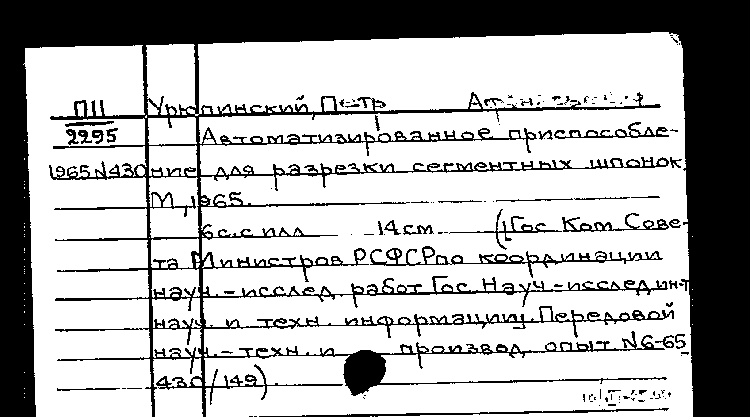 П11 Урюпинский, Петр
2295 Автоматизированное приспособле-
1965 N430 ние для разрезки сегментных шпонок.
М., 1965.
6 с. с илл 14 см (Гос Ком Сове-
та Министров РСФСР по координации
науч.-исслед. работ Гос. Науч.-исслед ин-т
науч. и техн. информации. Передовой
науч.-техн. и производ опыт N6-65
430/149).